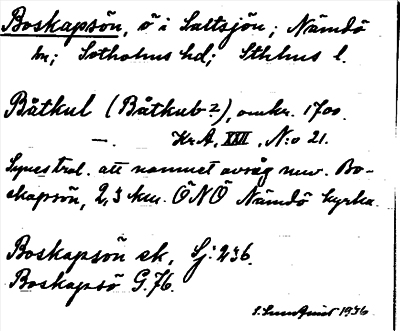 Boskapsön, ö i Saltsjön; Nämdö
kn; Sotholms hd; Sthlms l.
Båtkul (Båtkub?), omkr. 1700.
—. Kr.A, XXII, N:o 21.
Synes trol. att namnet avsåg nuv. Bo-
skapsön, 2,3 km. ÖNÖ Nämdö kyrka.
Boskapsön ek, Sj: 236.
Boskapsö G.76.
S. Sundquist 1936